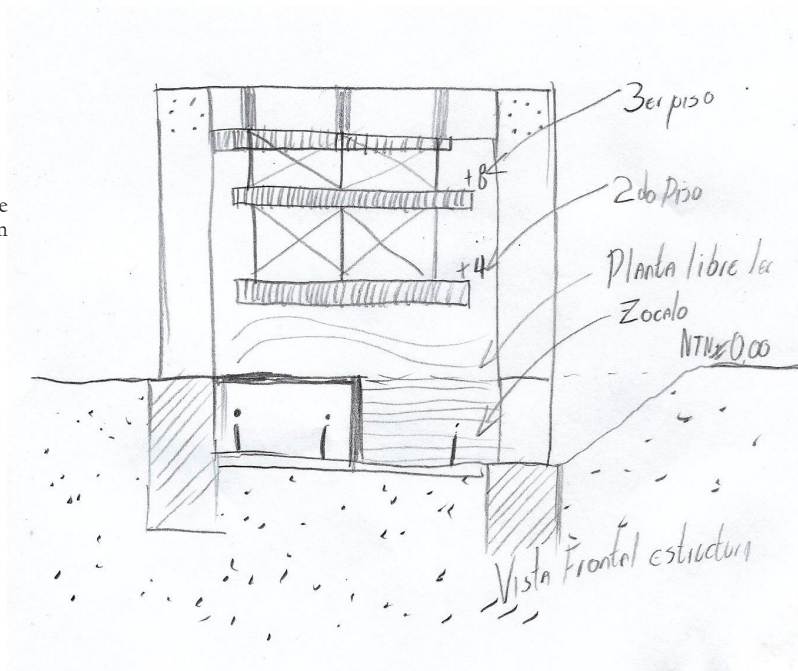 3er piso
+8
2do Piso
+4
Planta libre
Zocalo
NTN± 0,00
Vista Frontal estructura